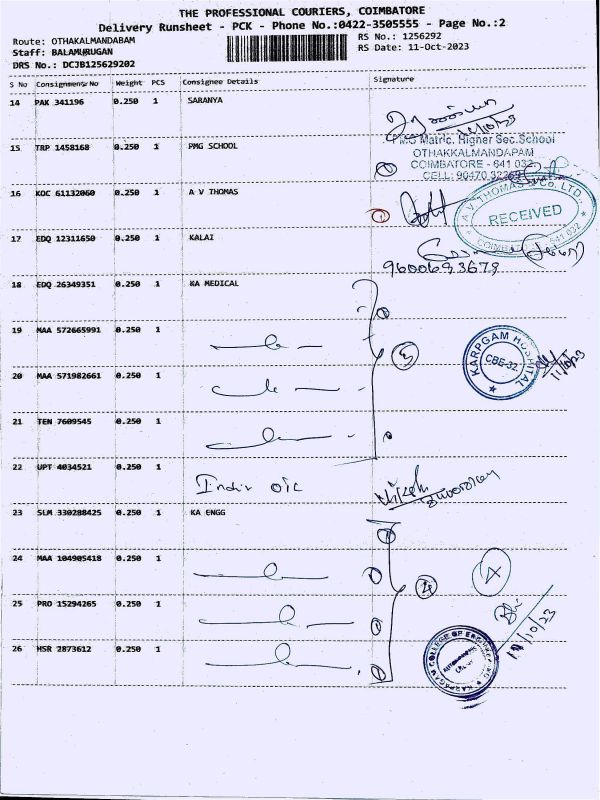 THE PROFESSIONAL COURIERS, COIMBATORE
Delivery Runsheet - PCK - Phone No.:0422-3505555 - Page No.:2
Route: OTHAKALMANDABAM
RS No.: 1256292
Staff: BALAMURUGAN
RS Date: 11-Oct-2023
DRS No.: DCJB125629202
S No Consignment No Weight PCS Consignee Details Signature
14 PAK 341196 0.250 1 SARANYA
15 TRP 1458168 0.250 1 PMG SCHOOL
PMG Matric. Higher Sec.School
OTHAKKALMANDAPAM
COIMBATORE - 641 032
16 KOC 61132060 0.250 1 A V THOMAS
A.V. THOMAS & CO. LTD.,
RECEIVED
COIMBATORE 641 032
17 EDQ 12311650 0.250 1 KALAI
9600693679
18 EDQ 26349351 0.250 1 KA MEDICAL
19 MAA 572665991 0.250 1
KARPGAM HOSPITAL
CBE-32
20 MAA 571982661 0.250 1
21 TEN 7609545 0.250 1
22 UPT 4034521 0.250 1 Indir oil
23 SLM 330288425 0.250 1 KA ENGG
24 MAA 104905418 0.250 1
4
25 PRO 15294265 0.250 1
26 HSR 2873612 0.250 1
KARPAGAM COLLEGE OF ENGINEERING